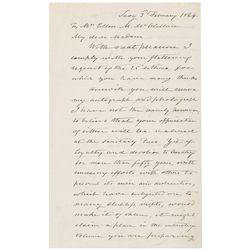 Troy 3d February 1864.
To Mrs Ellen M. McClellan
My dear Madam
With great pleasure I
comply with your flattering
request of the 25 ultimo for
which you have many thanks
Herewith you will receive
my autograph and photograph
I have not the vanity however
to believe that your appreciation
of either will be realized
at the Sanitary Fair. Yet if
loyalty and devotion to country
for more than fifty years with
unceasing efforts with others to
preserve its union and
which
have subjected me to
many
would
make it of value, it might
claim a place in the
volume you are preparing